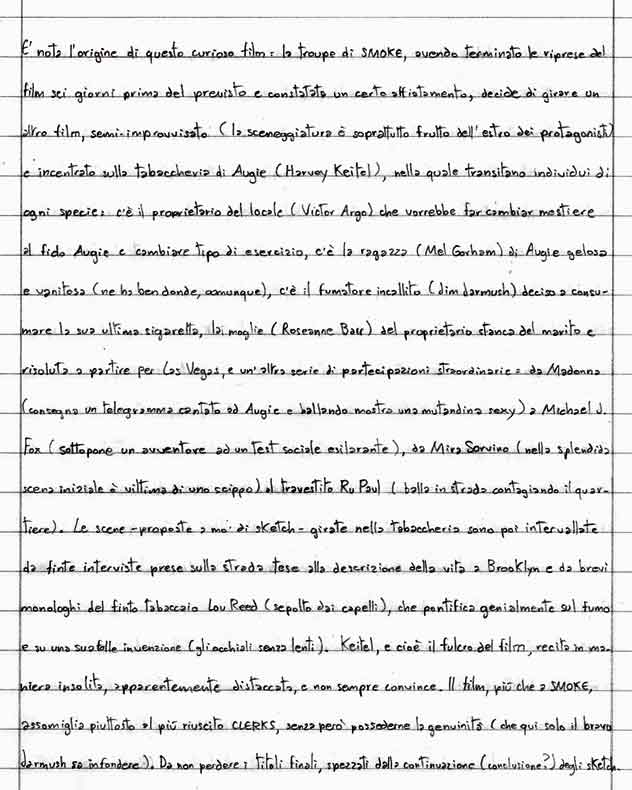 E' nota l'origine di questo curioso film: la troupe di SMOKE, avendo terminato le riprese del
film sei giorni prima del previsto e constatato un certo affiatamento, decide di girare un
altro film, semi-improvvisato (la sceneggiatura è soprattutto frutto dell'estro dei protagonisti)
e incentrato sulla tabaccheria di Augie (Harvey Keitel), nella quale transitano individui di
ogni specie: c'è il proprietario del locale (Victor Argo) che vorrebbe far cambiar mestiere
al fido Augie e cambiare tipo di esercizio, c'è la ragazza (Mel Gorham) di Augie gelosa
e vanitosa (ne ha ben donde, comunque), c'è il fumatore incallito (Jim Jarmush) deciso a consu-
mare la sua ultima sigaretta, la moglie (Roseanne Barr) del proprietario stanca del marito e
risoluta a partire per Las Vegas, e un'altra serie di partecipazioni straordinarie: da Madonna
(consegna un telegramma cantato ad Augie e ballando mostra una mutandina sexy) a Michael J.
Fox (sottopone un avventore ad un test sociale esilarante), da Mira Sorvino (nella splendida
scena iniziale è vittima di uno scippo) al travestito Ru Paul (balla in strada contagiando il quar-
tiere). Le scene -proposte a mo' di sketch- girate nella tabaccheria sono poi intervallate
da finte interviste prese sulla strada tese alla descrizione della vita a Brooklyn e da brevi
monologhi del finto tabaccaio Lou Reed (sepolto dai capelli), che pontifica genialmente sul fumo
e su una sua folle invenzione (gli occhiali senza lenti). Keitel, e cioè il fulcro del film, recita in ma-
niera insolita, apparentemente distaccata, e non sempre convince. Il film, più che a SMOKE,
assomiglia piuttosto al più riuscito CLERKS, senza però possederne la genuinità (che qui solo il bravo
Jarmush sa infondere). Da non perdere i titoli finali, spezzati dalla continuazione (conclusione?) degli sketch.